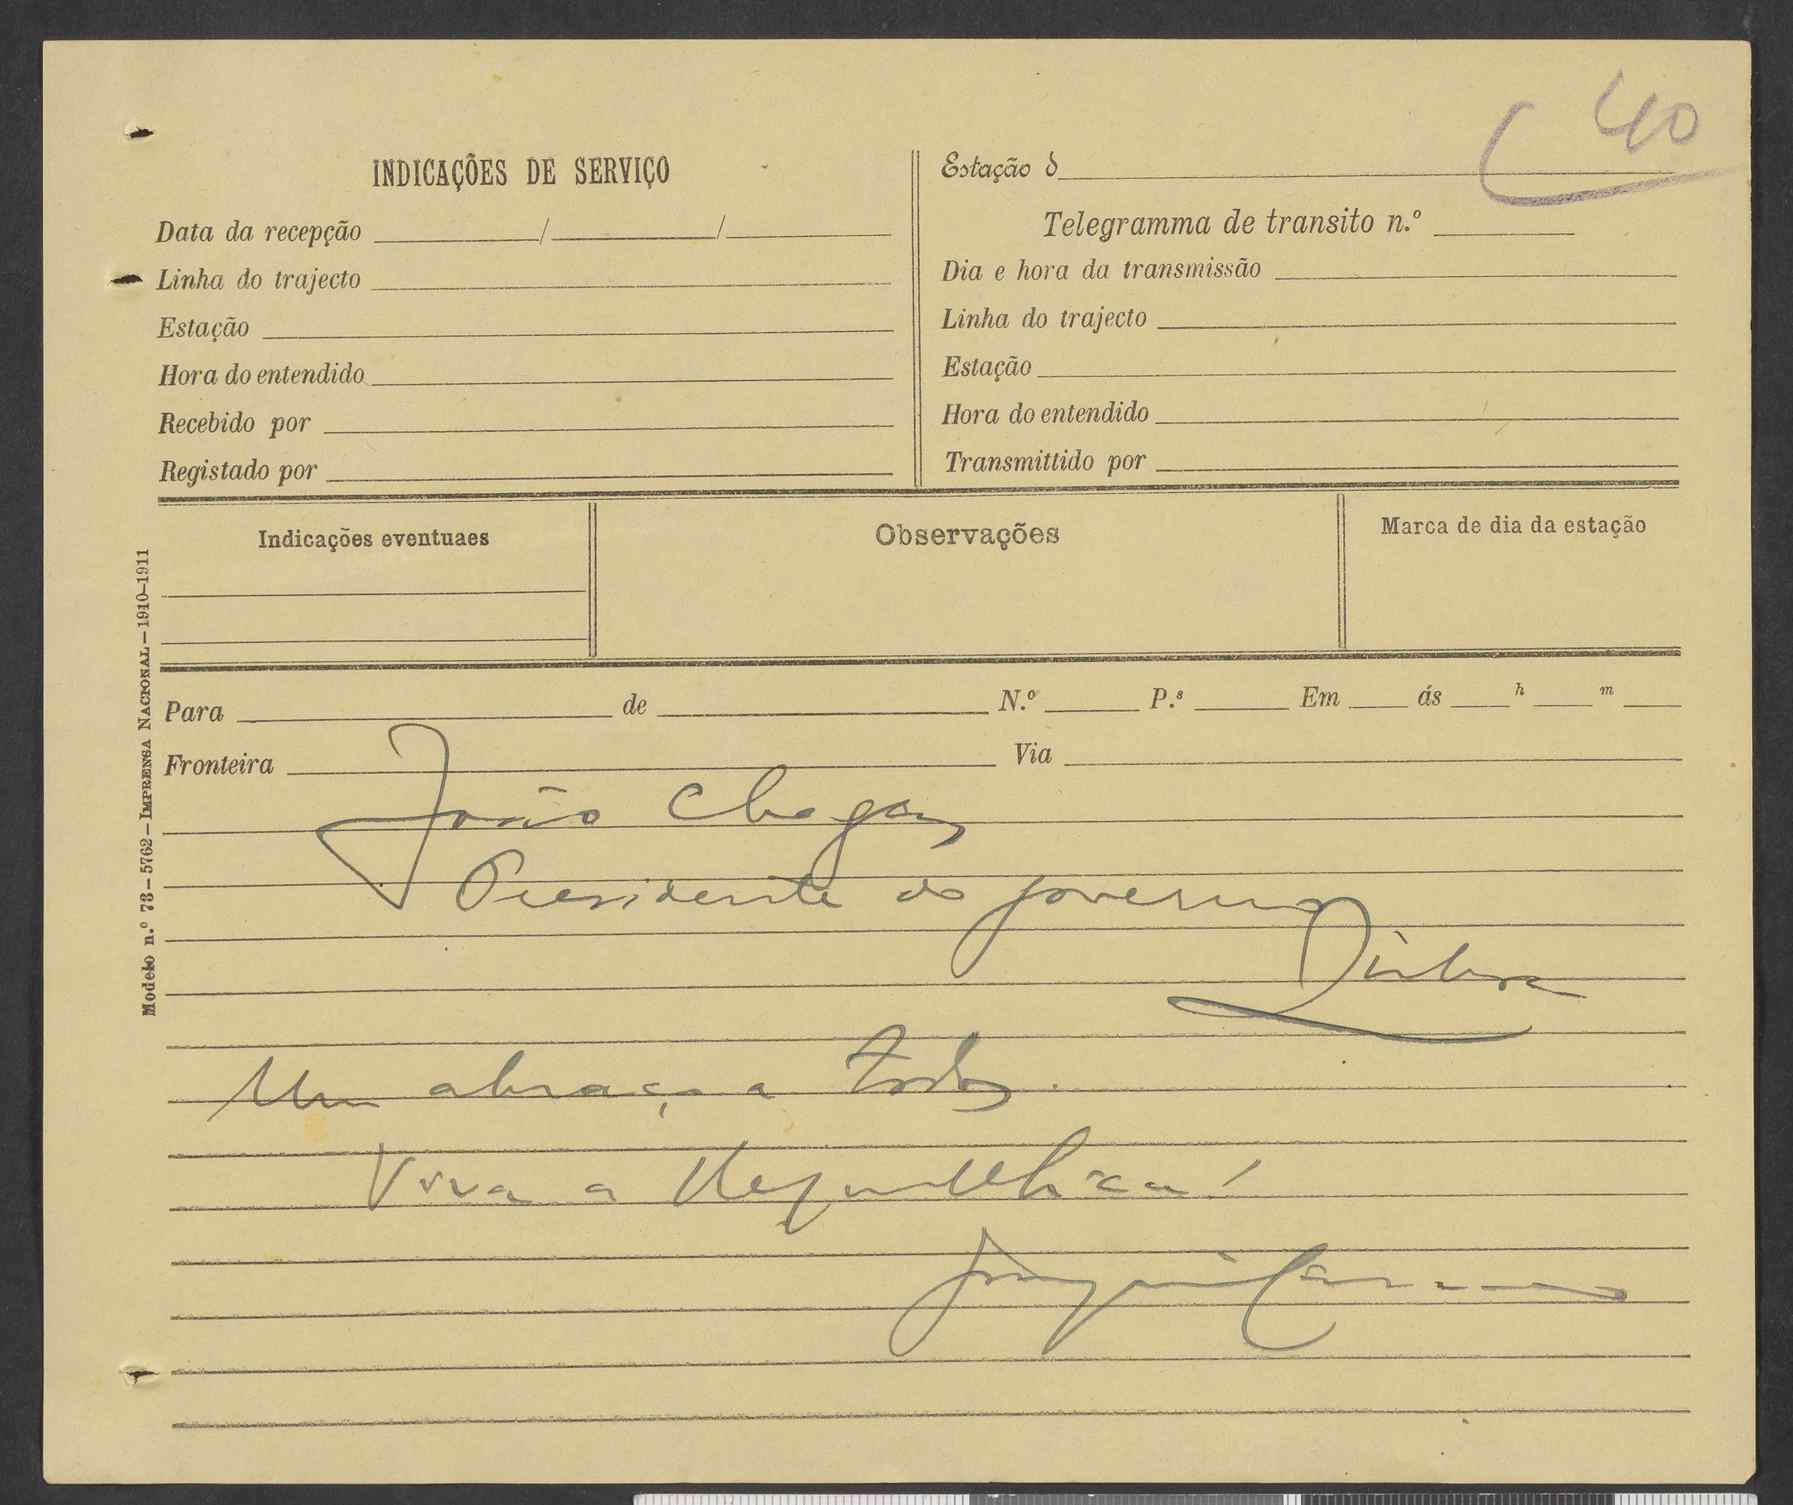 40
INDICAÇÕES DE SERVIÇO
Data da recepção / /
Linha do trajecto
Estação
Hora do entendido
Recebido por
Registado por
Estação d
Telegramma de transito n.º
Dia e hora da transmissão
Linha do trajecto
Estação
Hora do entendido
Transmittido por
Indicações eventuaes
Observações
Marca de dia da estação
Para de N.º P.s Em ás h m
Fronteira Via
João Chagas
Presidente do governo
Lisboa
Um abraço a todos.
Viva a Republica!
Modelo n.º 73–5762–IMPRENSA NACIONAL–1910–1911